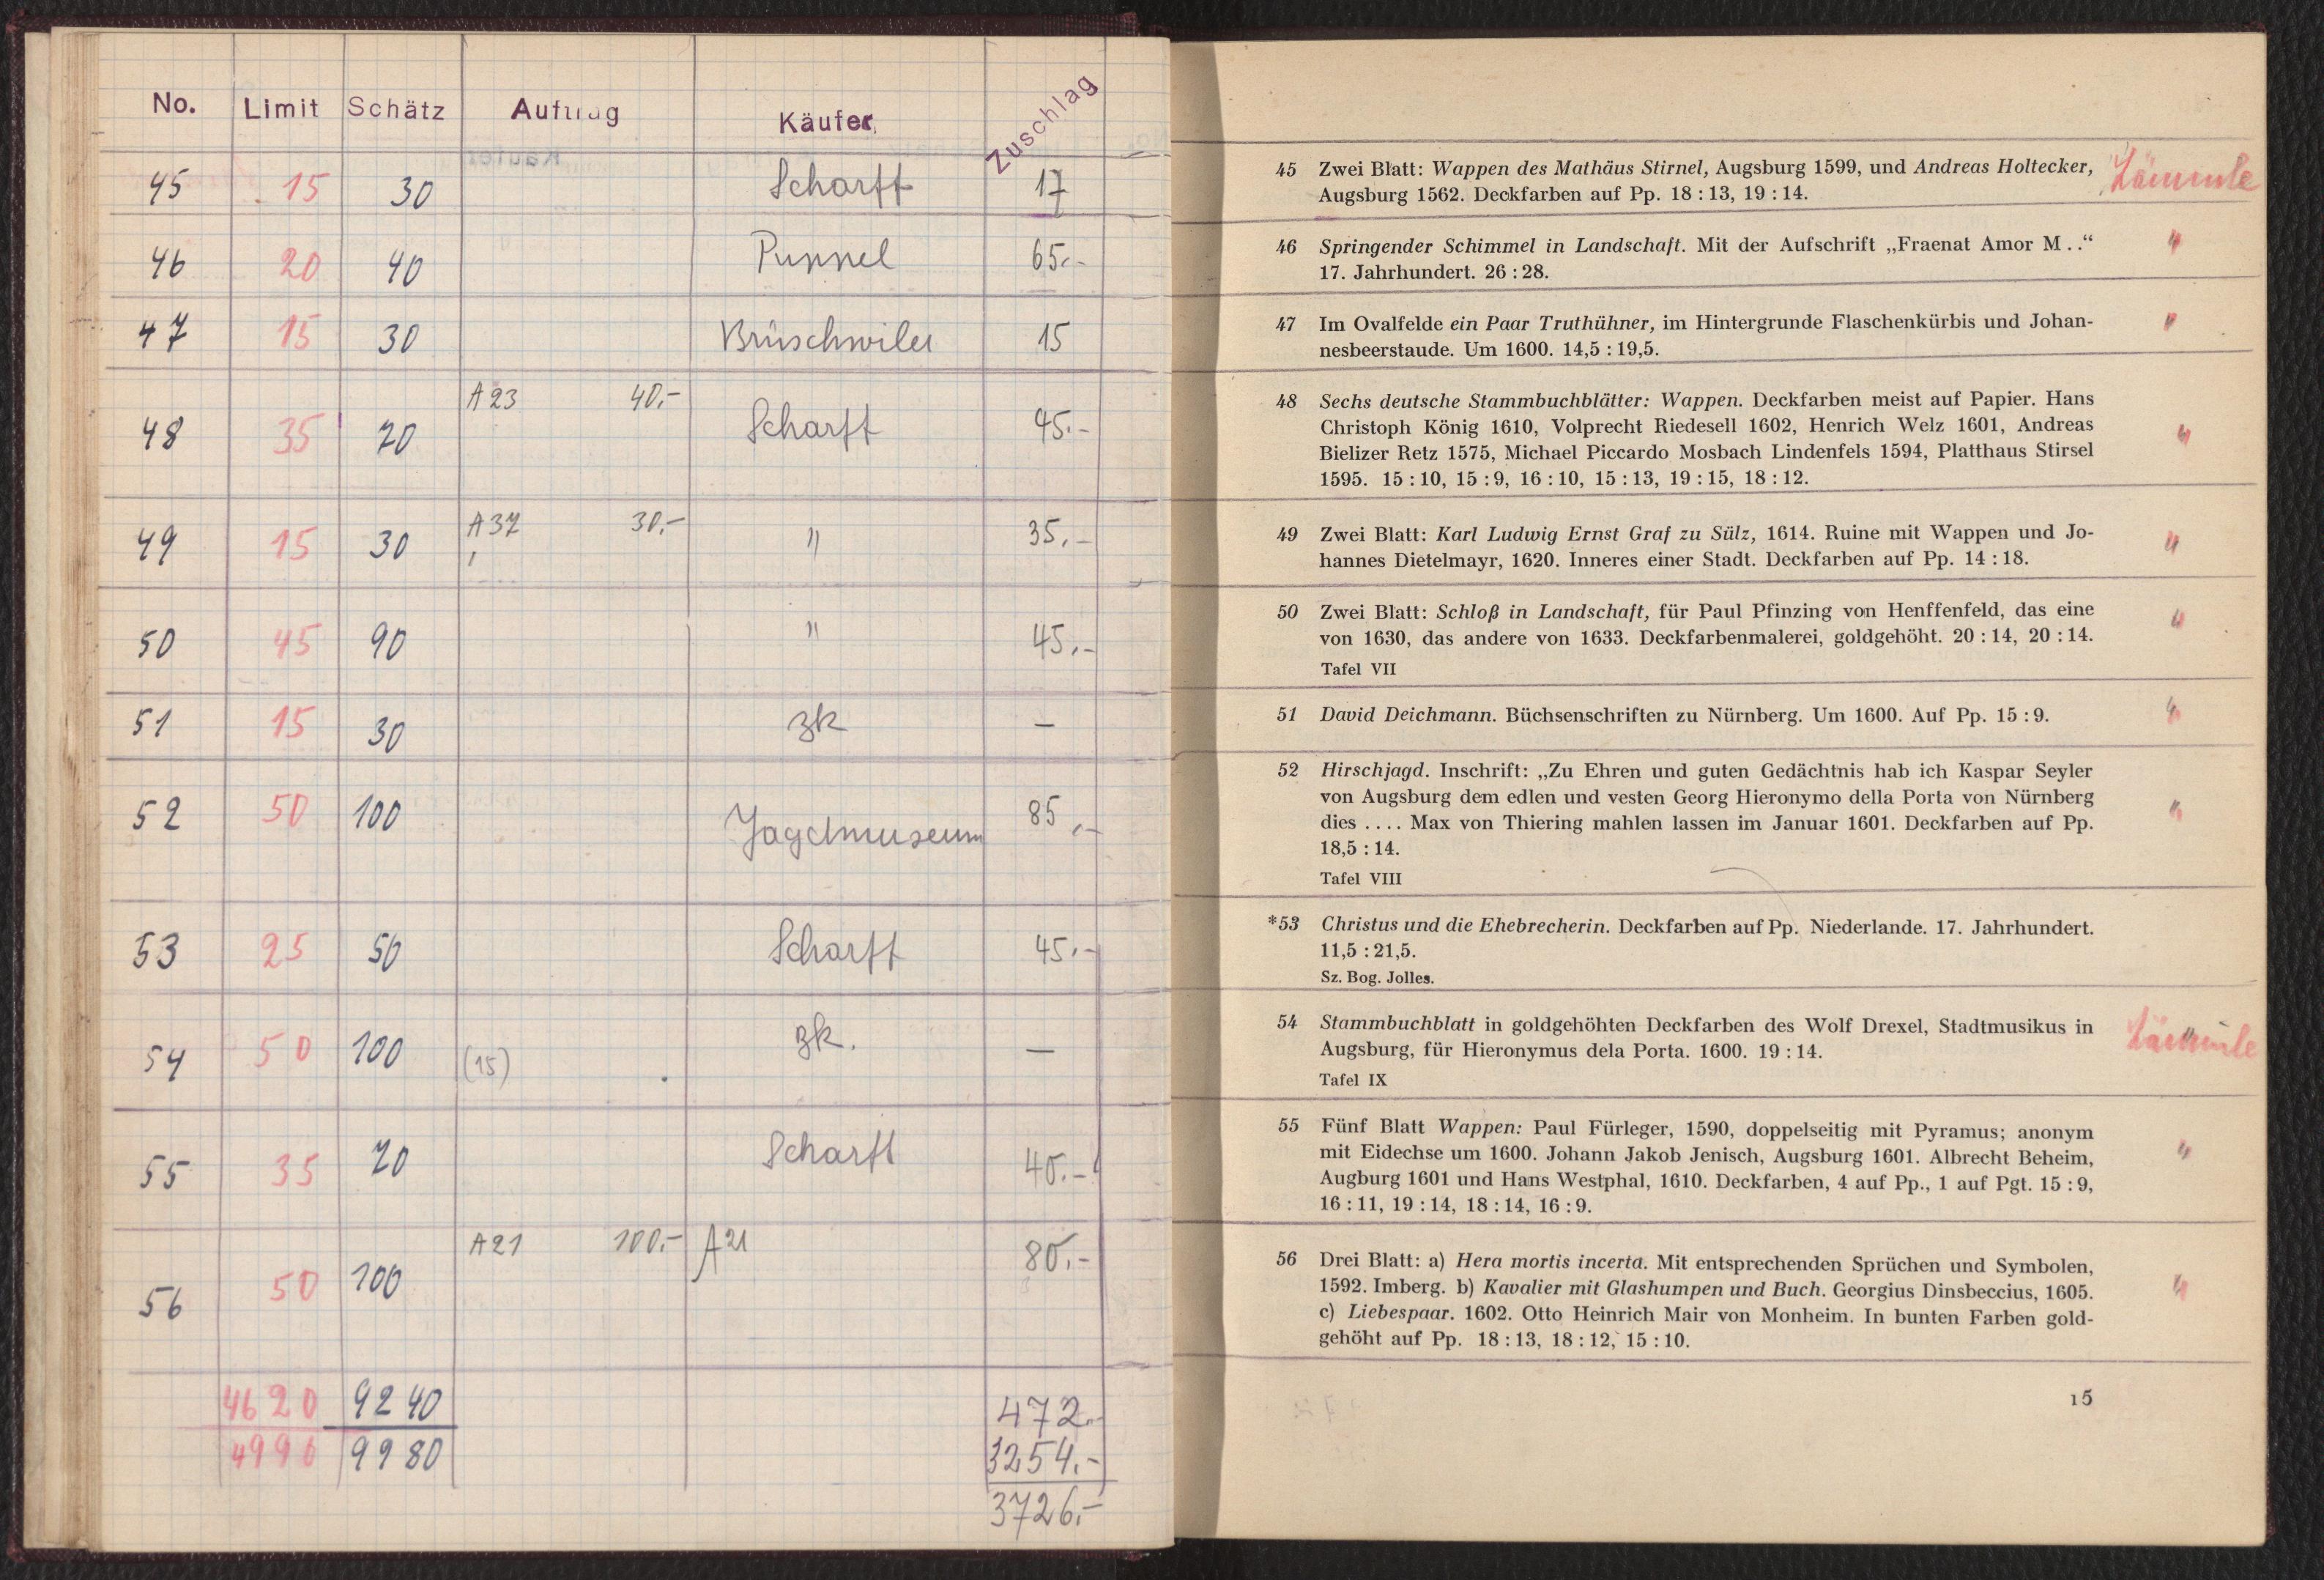 No. Limit Schätz Auftrag Käufer Zuschlag
45 15 30 Scharff 17
46 20 40 Puppel 65.-
47 15 30 Brüschwiler 15
A23 40.-
48 35 70 Scharff 45.-
A37 30.-
49 15 30 " 35.-
50 45 90 " 45.-
51 15 30 zk —
52 50 100 Jagdmuseum 85.-
53 25 50 Scharff 45.-
54 50 100 (15) zk. —
55 35 70 Scharff 40.-
A21 100.- A21 80.-
56 50 100
4620 9240 472.-
4990 9980 3254.-
3726.-
45 Zwei Blatt: Wappen des Mathäus Stirnel, Augsburg 1599, und Andreas Holtecker, Lämmle
Augsburg 1562. Deckfarben auf Pp. 18 : 13, 19 : 14.
46 Springender Schimmel in Landschaft. Mit der Aufschrift „Fraenat Amor M . .“ "
17. Jahrhundert. 26 : 28.
47 Im Ovalfelde ein Paar Truthühner, im Hintergrunde Flaschenkürbis und Johan- "
nesbeerstaude. Um 1600. 14,5 : 19,5.
48 Sechs deutsche Stammbuchblätter: Wappen. Deckfarben meist auf Papier. Hans
Christoph König 1610, Volprecht Riedesell 1602, Henrich Welz 1601, Andreas "
Bielizer Retz 1575, Michael Piccardo Mosbach Lindenfels 1594, Platthaus Stirsel
1595. 15 : 10, 15 : 9, 16 : 10, 15 : 13, 19 : 15, 18 : 12.
49 Zwei Blatt: Karl Ludwig Ernst Graf zu Sülz, 1614. Ruine mit Wappen und Jo- "
hannes Dietelmayr, 1620. Inneres einer Stadt. Deckfarben auf Pp. 14 : 18.
50 Zwei Blatt: Schloß in Landschaft, für Paul Pfinzing von Henffenfeld, das eine "
von 1630, das andere von 1633. Deckfarbenmalerei, goldgehöht. 20 : 14, 20 : 14.
Tafel VII
51 David Deichmann. Büchsenschriften zu Nürnberg. Um 1600. Auf Pp. 15 : 9. "
52 Hirschjagd. Inschrift: „Zu Ehren und guten Gedächtnis hab ich Kaspar Seyler
von Augsburg dem edlen und vesten Georg Hieronymo della Porta von Nürnberg "
dies . . . . Max von Thiering mahlen lassen im Januar 1601. Deckfarben auf Pp.
18,5 : 14.
Tafel VIII
*53 Christus und die Ehebrecherin. Deckfarben auf Pp. Niederlande. 17. Jahrhundert.
11,5 : 21,5.
Sz. Bog. Jolles.
54 Stammbuchblatt in goldgehöhten Deckfarben des Wolf Drexel, Stadtmusikus in Lämmle
Augsburg, für Hieronymus dela Porta. 1600. 19 : 14.
Tafel IX
55 Fünf Blatt Wappen: Paul Fürleger, 1590, doppelseitig mit Pyramus; anonym
mit Eidechse um 1600. Johann Jakob Jenisch, Augsburg 1601. Albrecht Beheim, "
Augburg 1601 und Hans Westphal, 1610. Deckfarben, 4 auf Pp., 1 auf Pgt. 15 : 9,
16 : 11, 19 : 14, 18 : 14, 16 : 9.
56 Drei Blatt: a) Hera mortis incerta. Mit entsprechenden Sprüchen und Symbolen,
1592. Imberg. b) Kavalier mit Glashumpen und Buch. Georgius Dinsbeccius, 1605. "
c) Liebespaar. 1602. Otto Heinrich Mair von Monheim. In bunten Farben gold-
gehöht auf Pp. 18 : 13, 18 : 12, 15 : 10.
15